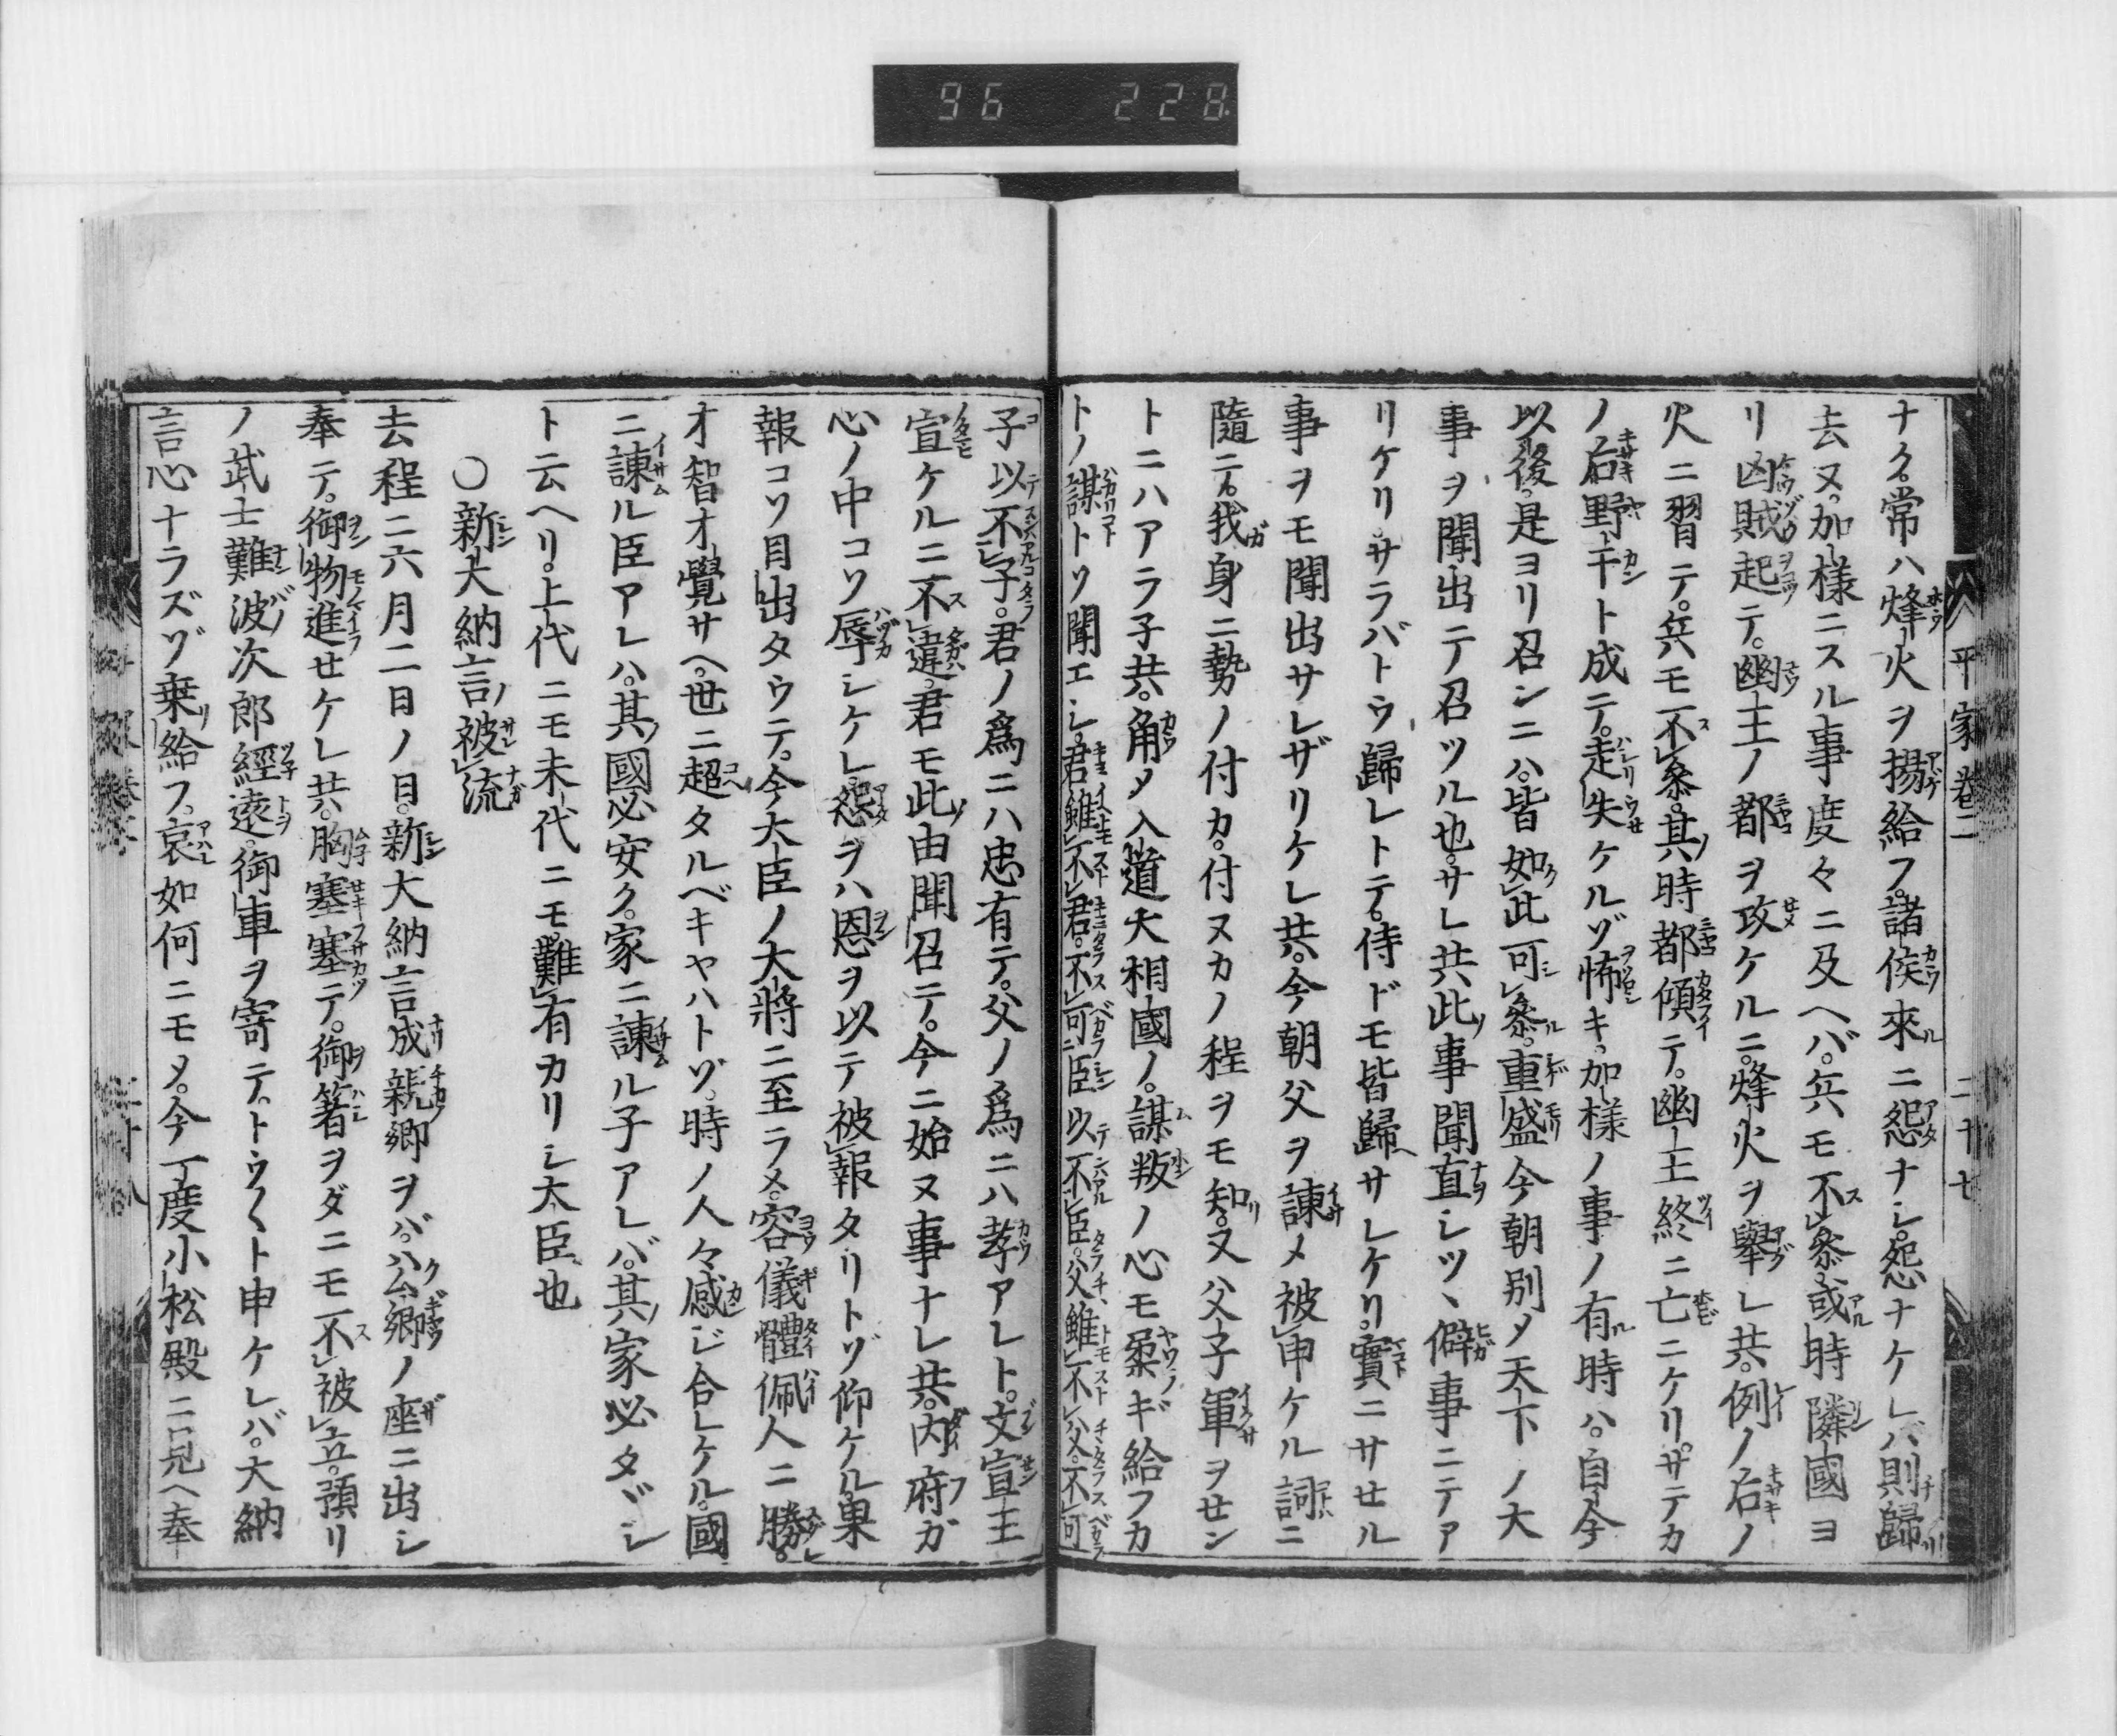 96 228
平家巻二 二十七
ナク。常ハ烽火ヲ揚給フ。諸侯來ニ怨ナシ。怨ナケレバ則歸
去ヌ。加様ニスル事度々ニ及ヘバ。兵モ不參。或時隣國ヨ
リ凶賊起テ。幽王ノ都ヲ攻ケルニ。烽火ヲ擧レ共。例ノ后ノ
火ニ習テ。兵モ不參。其時都傾テ。幽王終ニ亡ニケリ。サテカ
ノ后野干ト成テ。走失ケルゾ怖キ。加様ノ事ノ有時ハ。自今
以後。是ヨリ召ンニハ。皆如此可參。重盛今朝別メ天下ノ大
事ヲ聞出テ召ツル也。サレ共此事聞直シツヽ僻事ニテア
リケリ。サラバトウ歸レトテ。侍ドモ皆歸サレケリ。實ニサセル
事ヲモ聞出サレザリケレ共。今朝父ヲ諫メ被申ケル詞ニ
隨テ。我身ニ勢ノ付カ。付ヌカノ程ヲモ知。又ハ父子軍ヲセン
トニハアラ子共。角メ入道大相國ノ。謀叛ノ心モ柔ギ給フカ
トノ謀トソ聞エシ。君雖不君。不可臣以不臣。父雖不父。不可
子以不子。君ノ爲ニハ忠有テ。父ノ爲ニハ孝アレト。文宣王
宣ケルニ不違。君モ此由聞召テ。今ニ始ヌ事ナレ共。内府ガ
心ノ中コソ辱シケレ。怨ヲハ恩ヲ以テ被報タリトゾ仰ケル。果
報コソ目出タウテ。今大臣ノ大將ニ至ラメ。容儀體佩人ニ勝。
才智才覺サヘ。世ニ超タルベキヤハトゾ。時ノ人々感ジ合レケル。國
ニ諫ル臣アレハ。其國必安ク。家ニ諫ル子アレバ。其家必タヾシ
ト云ヘリ。上代ニモ末代ニモ。難有カリシ大臣也
○新大納言被流
去程ニ六月二日ノ日。新大納言成親卿ヲバ。公卿ノ座ニ出シ
奉テ。御物進セケレ共。胸塞塞テ。御箸ヲダニモ不被立。預リ
ノ武士難波次郎經遠。御車ヲ寄テ。トウ〱ト申ケレバ。大納
言心ナラズゾ乗給フ。哀如何ニモメ。今一度小松殿ニ見ヘ奉